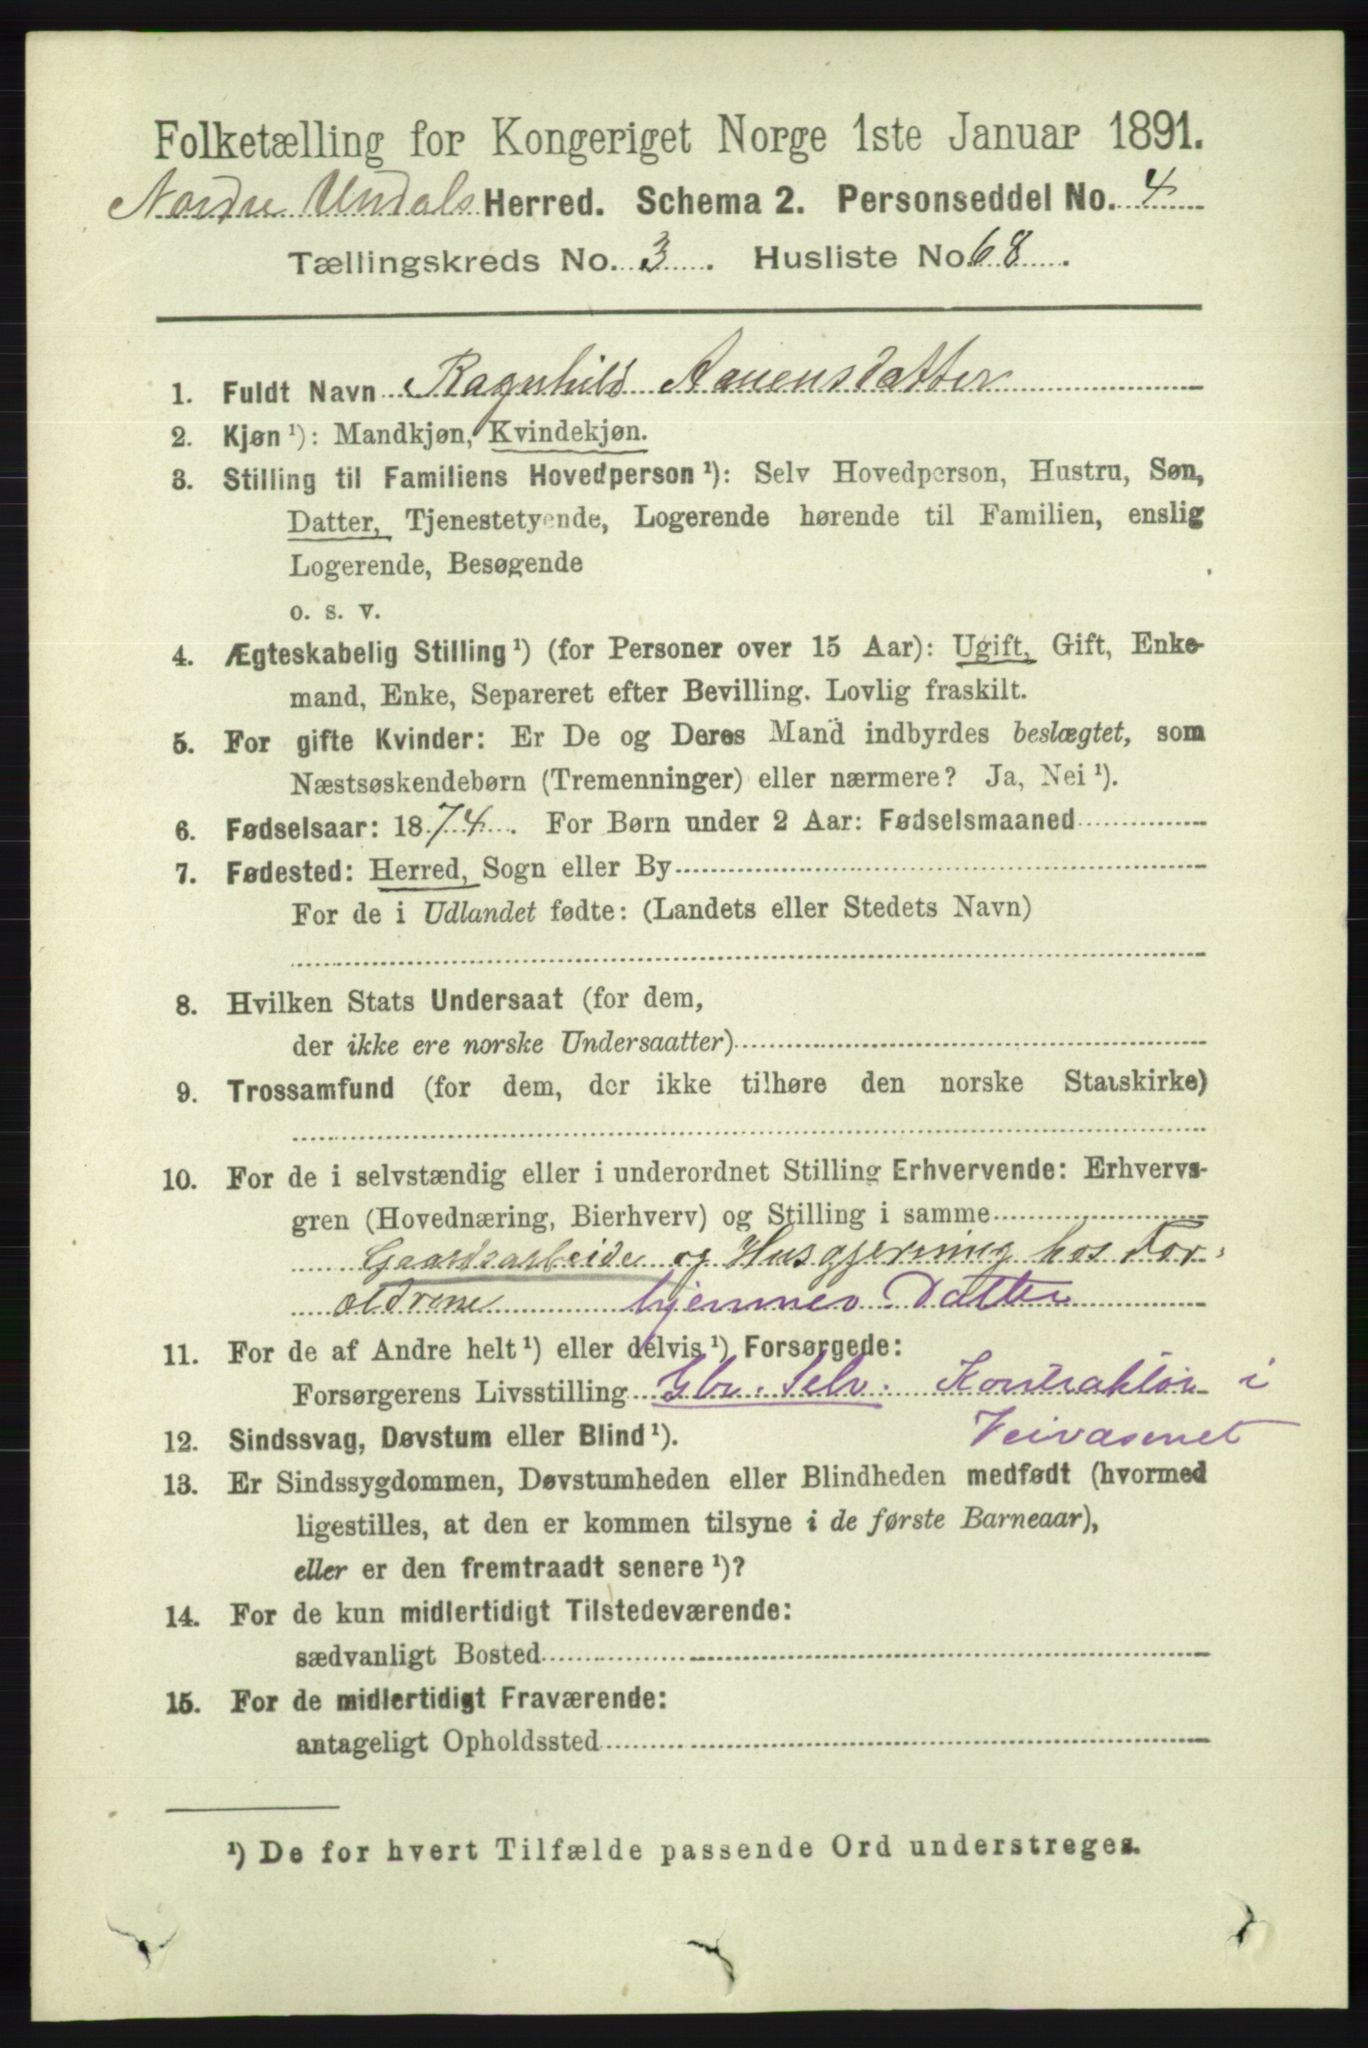 Folketælling for Kongeriget Norge 1ste Januar 1891.
Nordre Undals Herred. Schema 2. Personseddel No. 4
Tællingskreds No. 3. Husliste No 68.
1. Fuldt Navn Ragnhild Aanensdatter
2. Kjøn ¹): Mandkjøn, Kvindekjøn.
3. Stilling til Familiens Hovedperson ¹): Selv Hovedperson, Hustru, Søn,
Datter, Tjenestetyende, Logerende hørende til Familien, enslig
Logerende, Besøgende
o. s. v.
4. Ægteskabelig Stilling ¹) (for Personer over 15 Aar): Ugift, Gift, Enke-
mand, Enke, Separeret efter Bevilling. Lovlig fraskilt.
5. For gifte Kvinder: Er De og Deres Mand indbyrdes beslægtet, som
Næstsøskendebørn (Tremenninger) eller nærmere? Ja, Nei ¹).
6. Fødselsaar: 1874. For Børn under 2 Aar: Fødselsmaaned
7. Fødested: Herred, Sogn eller By
For de i Udlandet fødte: (Landets eller Stedets Navn)
8. Hvilken Stats Undersaat (for dem,
der ikke ere norske Undersaatter)
9. Trossamfund (for dem, der ikke tilhøre den norske Statskirke)
10. For de i selvstændig eller i underordnet Stilling Erhvervende: Erhvervs-
gren (Hovednæring, Bierhverv) og Stilling i samme
Gaardsarbeide og Husgjerning hos For-
ældrene hjemmev. Datter
11. For de af Andre helt ¹) eller delvis ¹) Forsørgede:
Forsørgerens Livsstilling Gbr. Selv. Kontraktør i
Veivæsenet
12. Sindssvag, Døvstum eller Blind ¹).
13. Er Sindssygdommen, Døvstumheden eller Blindheden medfødt (hvormed
ligestilles, at den er kommen tilsyne i de første Barneaar),
eller er den fremtraadt senere ¹)?
14. For de kun midlertidigt Tilstedeværende:
sædvanligt Bosted
15. For de midlertidigt Fraværende:
antageligt Opholdssted
¹) De for hvert Tilfælde passende Ord understreges.